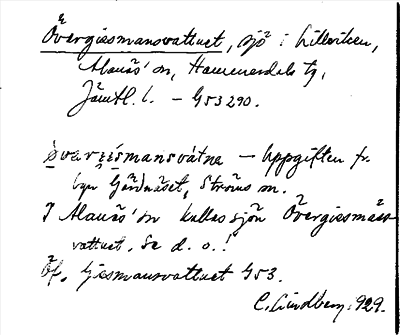 Övergissmansvattnet, sjö i Lillviken,
Alanäs sn, Hammerdals tg,
Jämtl. l. – G53290.
övargísmansvátne – Uppgiften fr.
byn Gärdnäset, Ströms sn.
I Alanäs sn kallas sjön Övergissmans-
vattnet. Se d. o.!
Öf. Gissmansvattnet G53.
C. Lindberg. 1929.